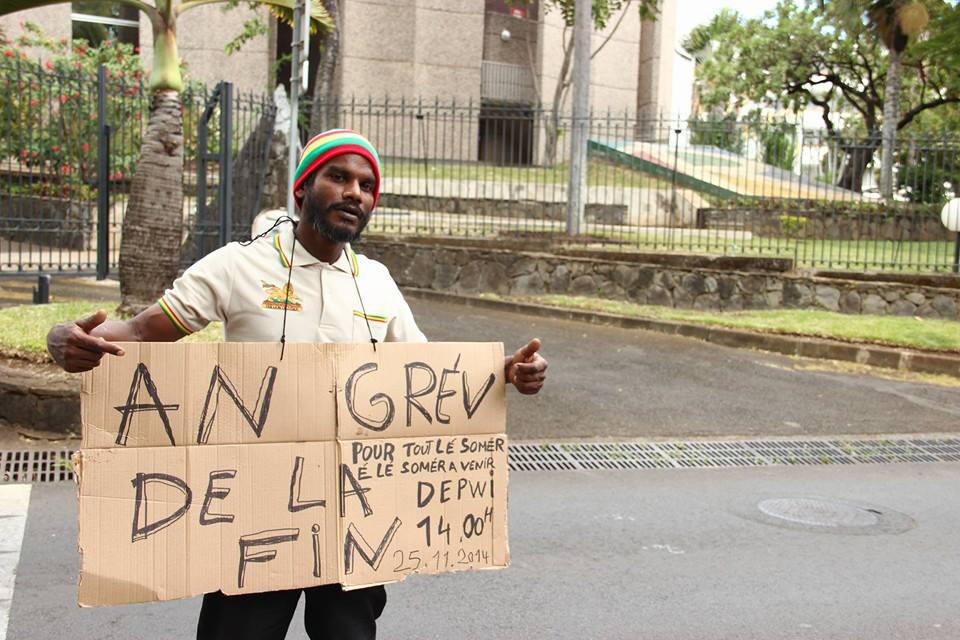 AN GRÉV
POUR TOUT LÉ SOMÉR
É LE SOMÉR A VENIR
DE LA
DEPWI
14.00H
FIN
25.11.2014